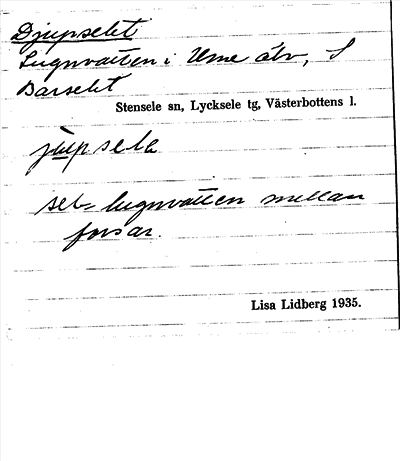 Djupselet
Lugnvatten i Ume älv, S
Barselet
Stensele sn, Lycksele tg, Västerbottens l.
jupsele
sel = lugnvatten mellan
forsar.
Lisa Lidberg 1935.